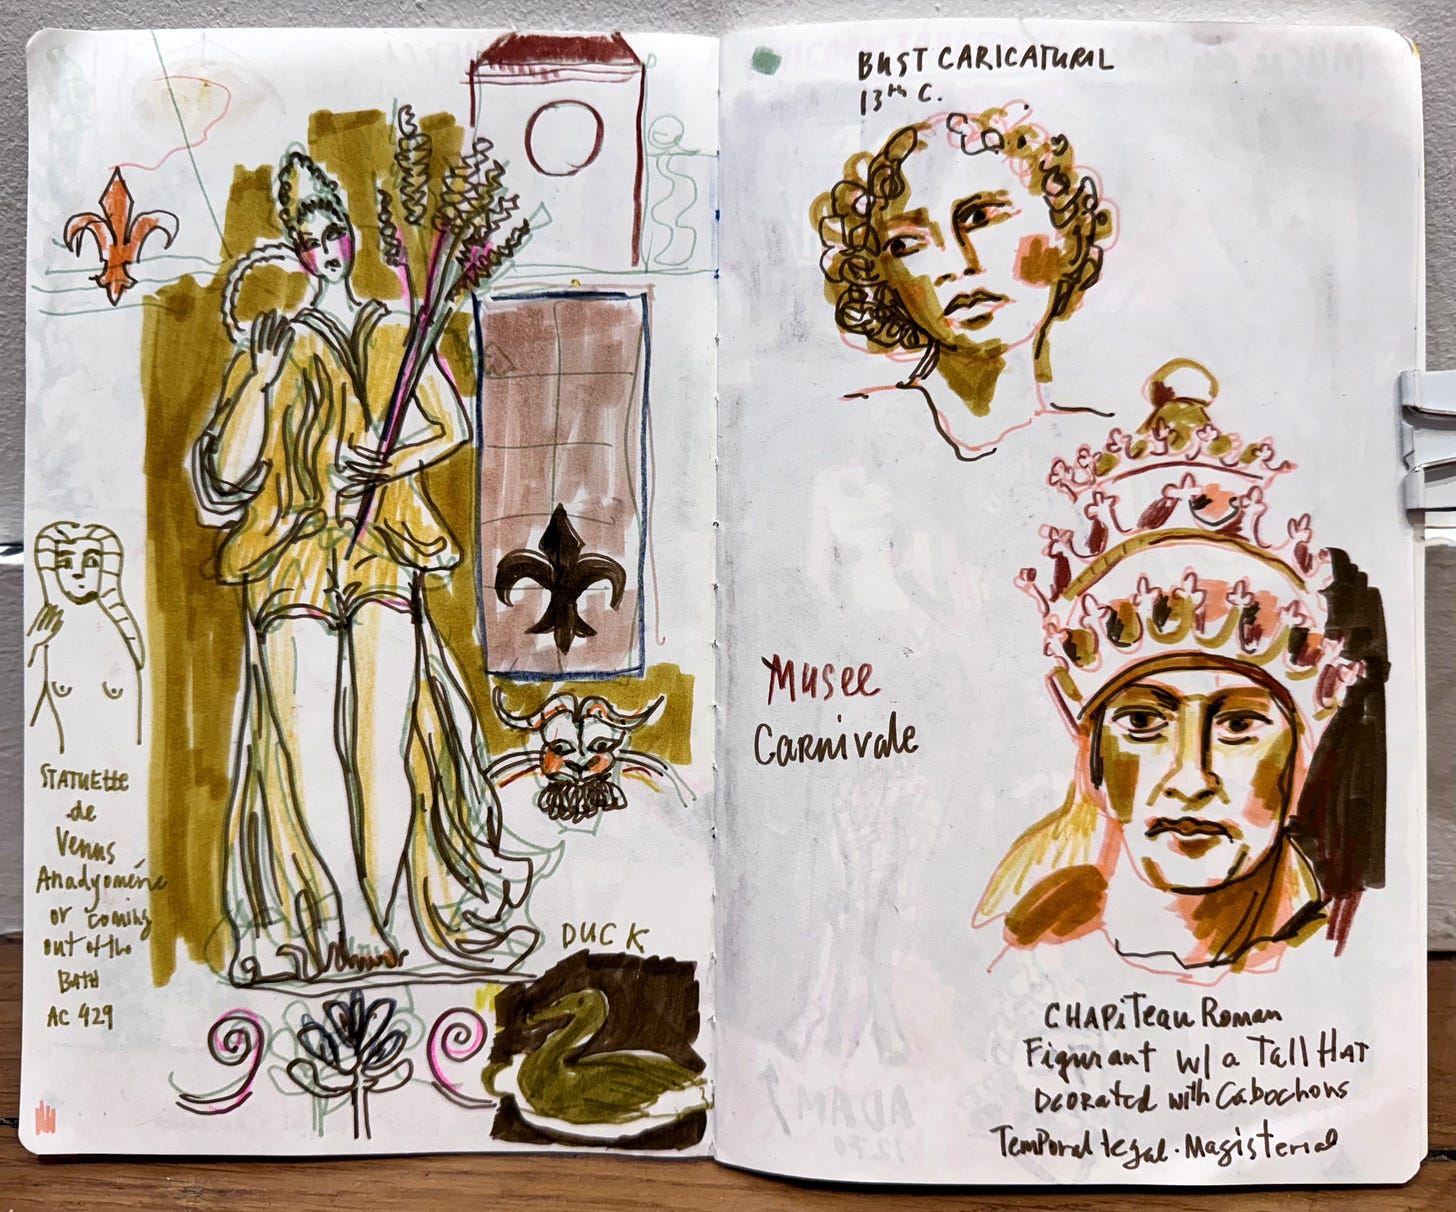 STATUETTE
de
Venus
Anadyoméne
or coming
out of the
BATH
AC 929
DUCK
BUST CARICATURAL
13th C.
Musee
Carnivale
CHAPiTeau Roman
Figurant w/ a Tall HAT
Deorated with Cabochons
Temporal legal . Magisterial
ADAM
1270